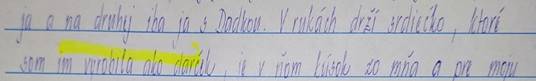 ja a na druhej iba ja s Dadkou. V rukách drží srdiečko, ktoré
som im vyrobila ako darček, je v ňom kúsok zo mňa a pre moju